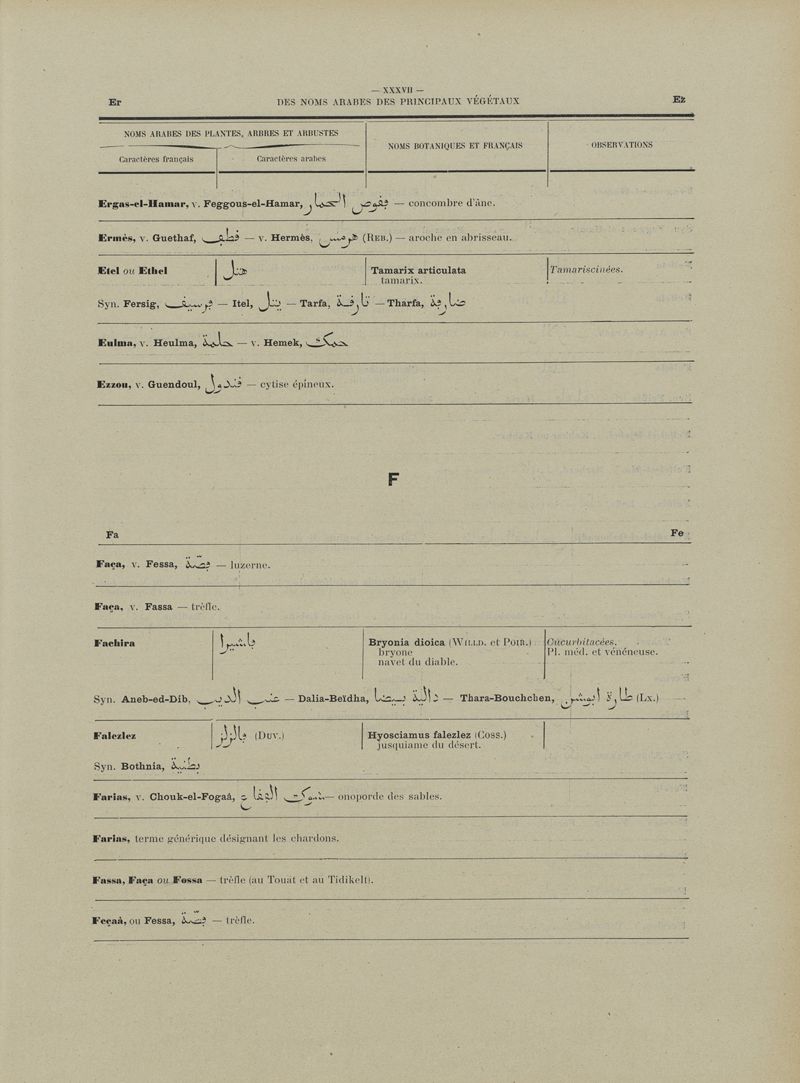 — XXXVII —
Er DES NOMS ARABES DES PRINCIPAUX VÉGÉTAUX Ez
NOMS ARABES DES PLANTES, ARBRES ET ARBUSTES
NOMS BOTANIQUES ET FRANÇAIS
OBSERVATIONS
Caractères français
Caractères arabes
Ergas-el-Hamar, v. Feggous-el-Hamar, — concombre d'âne.
Ermès, v. Guethaf, — v. Hermès, (REB.) — aroche en abrisseau.
Etel ou Ethel Tamarix articulata Tamariscinées.
tamarix.
Syn. Fersig, — Itel, — Tarfa, — Tharfa,
Eulma, v. Heulma, — v. Hemek,
Ezzou, v. Guendoul, — cytise épineux.
F
Fa Fe
Faça, v. Fessa, — luzerne.
Faça, v. Fassa — trèfle.
Fachira Bryonia dioica (WILLD. et POIR.) Cucurbitacées.
bryone Pl. méd. et vénéneuse.
navet du diable.
Syn. Aneb-ed-Dib, — Dalia-Beïdha, — Thara-Bouchchen, (LX.)
Falezlez (DUV.) Hyosciamus falezlez (COSS.)
jusquiame du désert.
Syn. Bothnia,
Farias, v. Chouk-el-Fogaâ, — onoporde des sables.
Farias, terme générique désignant les chardons.
Fassa, Faça ou Fossa — trèfle (au Touat et au Tidikelt).
Feçaâ, ou Fessa, — trèfle.